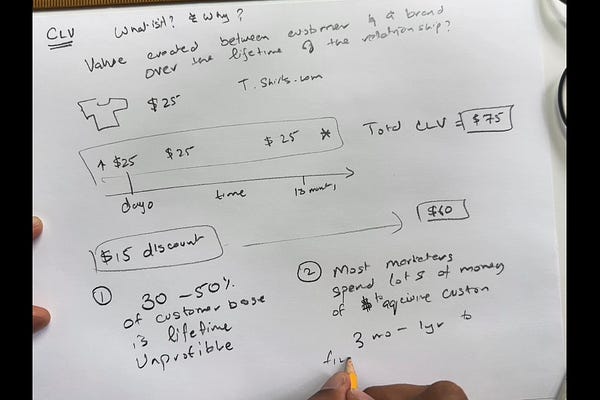 CLV What is it? & Why?
Value created between customer & a brand
over the lifetime of the relationship?
$25 T.Shirts.com
$25 $25 $25 * Total CLV = $75
day 0 time 18 months
$15 discount $60
① 30 - 50%
of customer base
is lifetime
Unprofible
② Most marketers
spend lots of money
of $ to aqcuire custom
3 mo - 1yr to